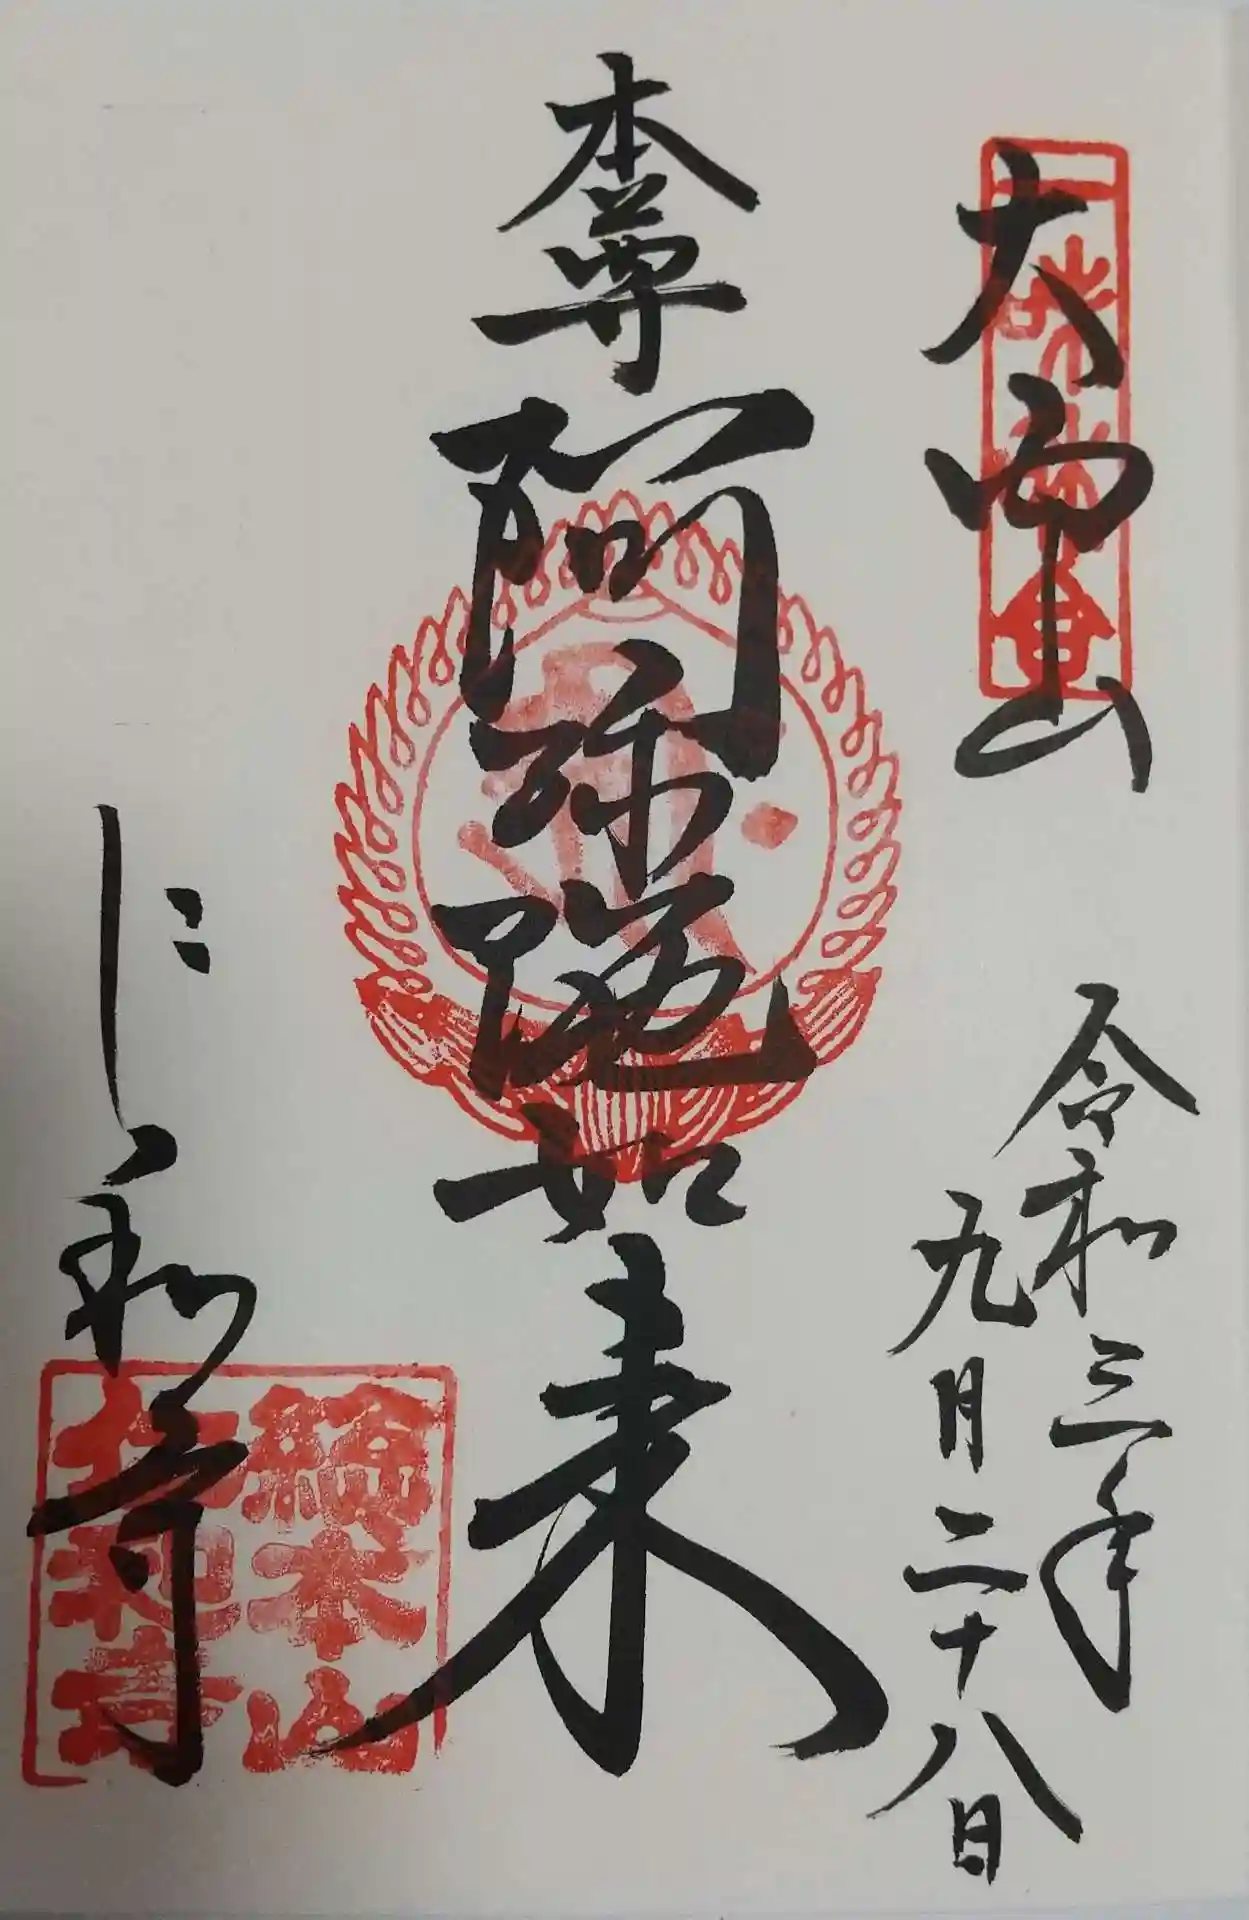 大宀山
令和三年
九月二十八日
本尊
阿弥陀如来
仁和寺
総本山
仁和寺